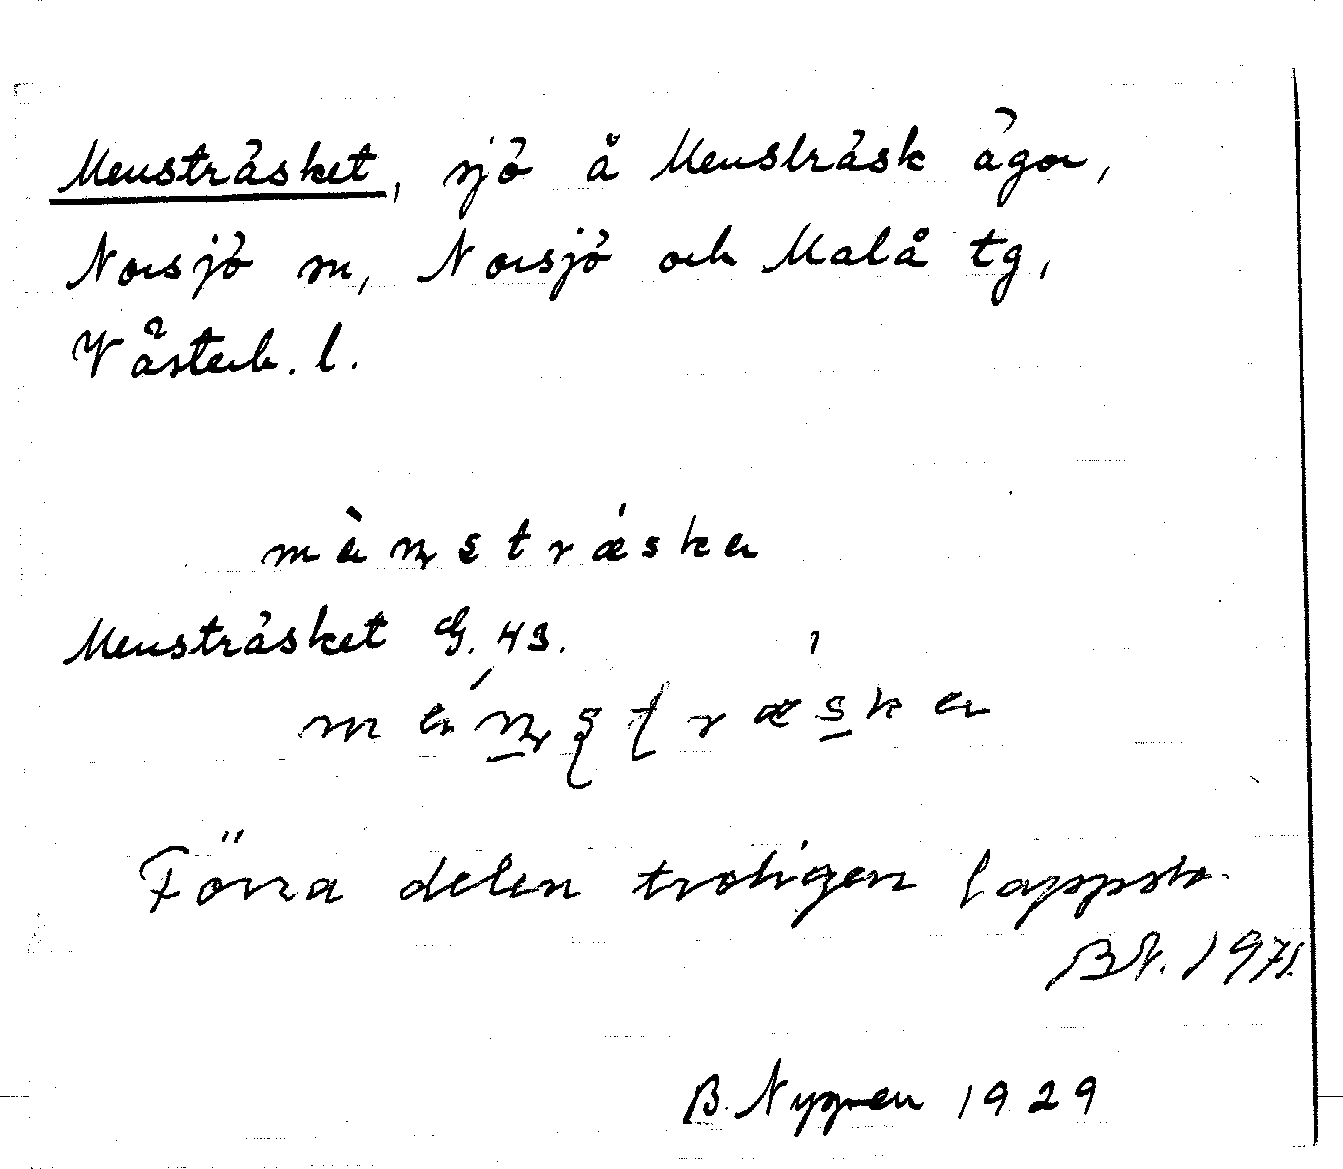 Mensträsket, sjö å Mensträsk ägor,
Norsjö sn, Norsjö och Malå tg,
Västerb. l.
mènstrǽska
Mensträsket G. 43.
ménstrǽska
Förra delen troligen lappsk.
BN. 1971.
B. Nygren 1929